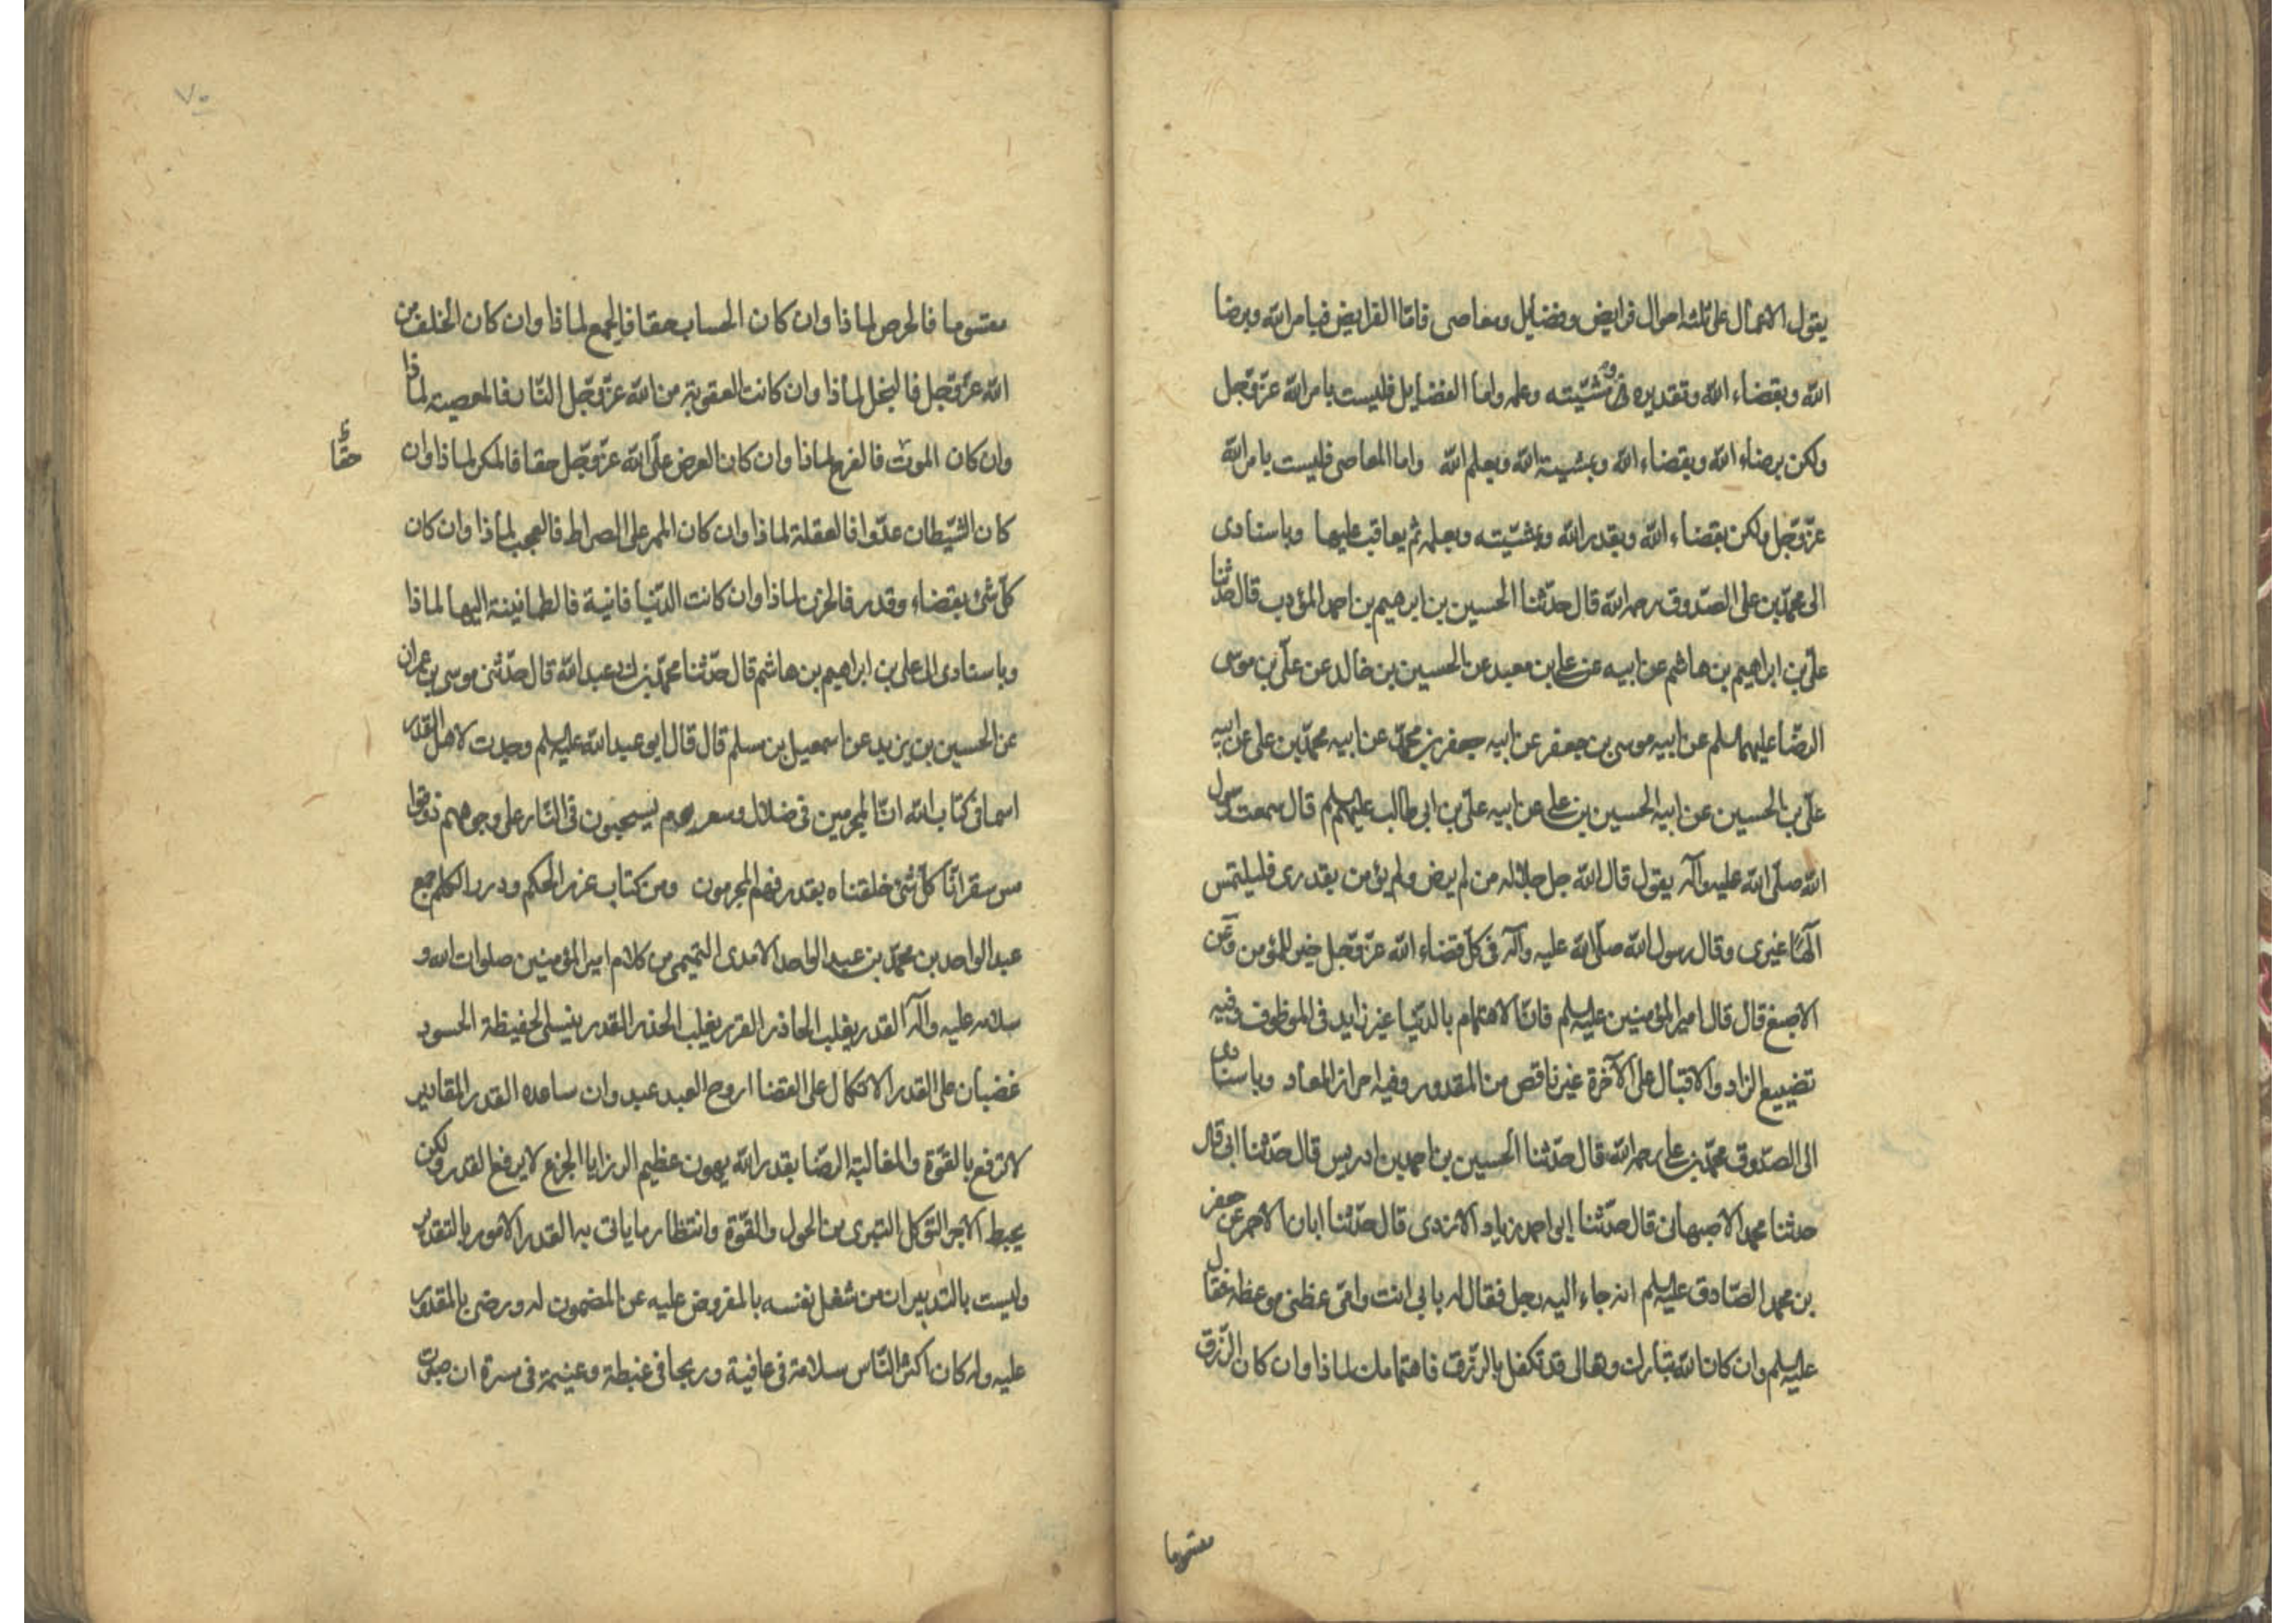 يقول الاعمال على ثلثة احوال فرايض وفضايل ومعاصى فامّا الفرايض فبامر الله وبرضا
الله وبقضاء الله وتقديره ومشيّته وعلمه واما الفضايل فليست بامر الله عزّ وجّل
ولكن برضاء الله وبقضاء الله وبمشيية الله وبعلم الله واما المعاصى فليست بامر الله
عزّ وجّل ولكن بقضاء الله وبقدر الله وبمشيّته وبعلمه ثم يعاقب عليها وباسنادى
الى محمّد بن على الصّدوق رحمه الله قال حدّثنا الحسين بن ابرهيم بن احمد المؤدب قال حدّثنا
علىّ بن ابراهيم بن هاشم عن ابيه عن على بن معبد عن الحسين بن خالد عن علىّ بن موسى
الرضّا عليهما السلم عن ابيه موسى بن جعفر عن ابيه جعفر بن محمّد عن ابيه محمّد بن على عن ابيه
علىّ بن الحسين عن ابيه الحسين بن على عن ابيه علىّ بن ابى طالب عليهم السلم قال سمعت رسول
الله صلّى الله عليه وآله يقول قال الله جل جلاله من لم يرض ولم يؤمن بقدرى فليلتمس
آلهًا غيرى وقال رسول الله صلّى الله عليه وآله فى كلّ قضاء الله عزّ وجّل خير للمؤمن وعن
الاصبغ قال قال امير المؤمنين عليه السلم فانّ الاهتمام بالدّنيا غير زايد فى الموظوف وفيه
تضييع الزاد والاقبال على الآخرة غير ناقص من المقدور وفيه احراز المعاد وباسنادى
الى الصّدوق محمّد بن على رحمه الله قال حدّثنا الحسين بن احمد بن ادريس قال حدّثنا ابى قال
حدثنا محمد الاصبهانى قال حدّثنا ابو احمد بن زياد الازدى قال حدّثنا ابان الاحمر عن جعفر
بن محمد الصّادق عليه السلم انه جاء اليه رجل فقال له بابى انت وامّى عظنى موعظة فقال
عليه السلم وان كان الله تبارك وتعالى قد تكفل بالرّزق فاهتمامك لماذا وان كان الرّزق
مقسوما
٧٠
مقسوما فالحرص لماذا وان كان الحساب حقا فالجمع لماذا وان كان الخلف من
الله عزّ وجّل فالبخل لماذا وان كانت العقوبة من الله عزّ وجّل النّار فالمعصية لماذا
وان كان الموت فالفرح لماذا وان كان العرض علىّ الله عزّ وجّل حقا فالمكر لماذا وان
حقّا
كان الشّيطان عدّوا فالغفلة لماذا وان كان الممر على الصراط فالعجب لماذا وان كان
كلّ شئ بقضاء وقدر فالحزن لماذا وان كانت الدّنيا فانية فالطمانينة اليها لماذا
وباسنادى الى على بن ابراهيم بن هاشم قال حدّثنا محمّد بن ابى عبد الله قال حدّثنى موسى بن عمران
عن الحسين بن يزيد عن اسمعيل بن مسلم قال قال ابو عبد الله عليه السلم وجدت لاهل القدر
اسما فى كتاب الله انّ المجرمين فى ضلال وسعر يوم يسحبون فى النّار على وجوههم ذوقوا
مس سقر انّا كلّ شئ خلقناه بقدر فهم المجرمون ومن كتاب غرر الحكم ودرر الكلم جمع
عبد الواحد بن محمّد بن عبد الواحد الامدى التميمى من كلام امير المؤمنين صلوات الله و
سلامه عليه وآله القدر يغلب الحاذر القدر يغلب الحذر القدر ينسى الحفيظة الحسود
غضبان على القدر الاتكال على القضا اروح العبد عبد وان ساعده القدر المقادير
لا ترفع بالقوّة والمغالبة الرضّا بقدر الله يهون عظيم الرزايا الجزع لا يرفع القدر ولكن
يحبط الاجر التوكل التبرى من الحول والقوّة وانتظار ما ياتى به القدر الامور بالتقدير
وليست بالتدبير ان من شغل نفسه بالمفروض عليه عن المضمون له ورضى بالمقدور
عليه وله كان اكثر النّاس سلامة فى عافية وربحا فى غبطة وغنيمة فى مسرة ان صبرت